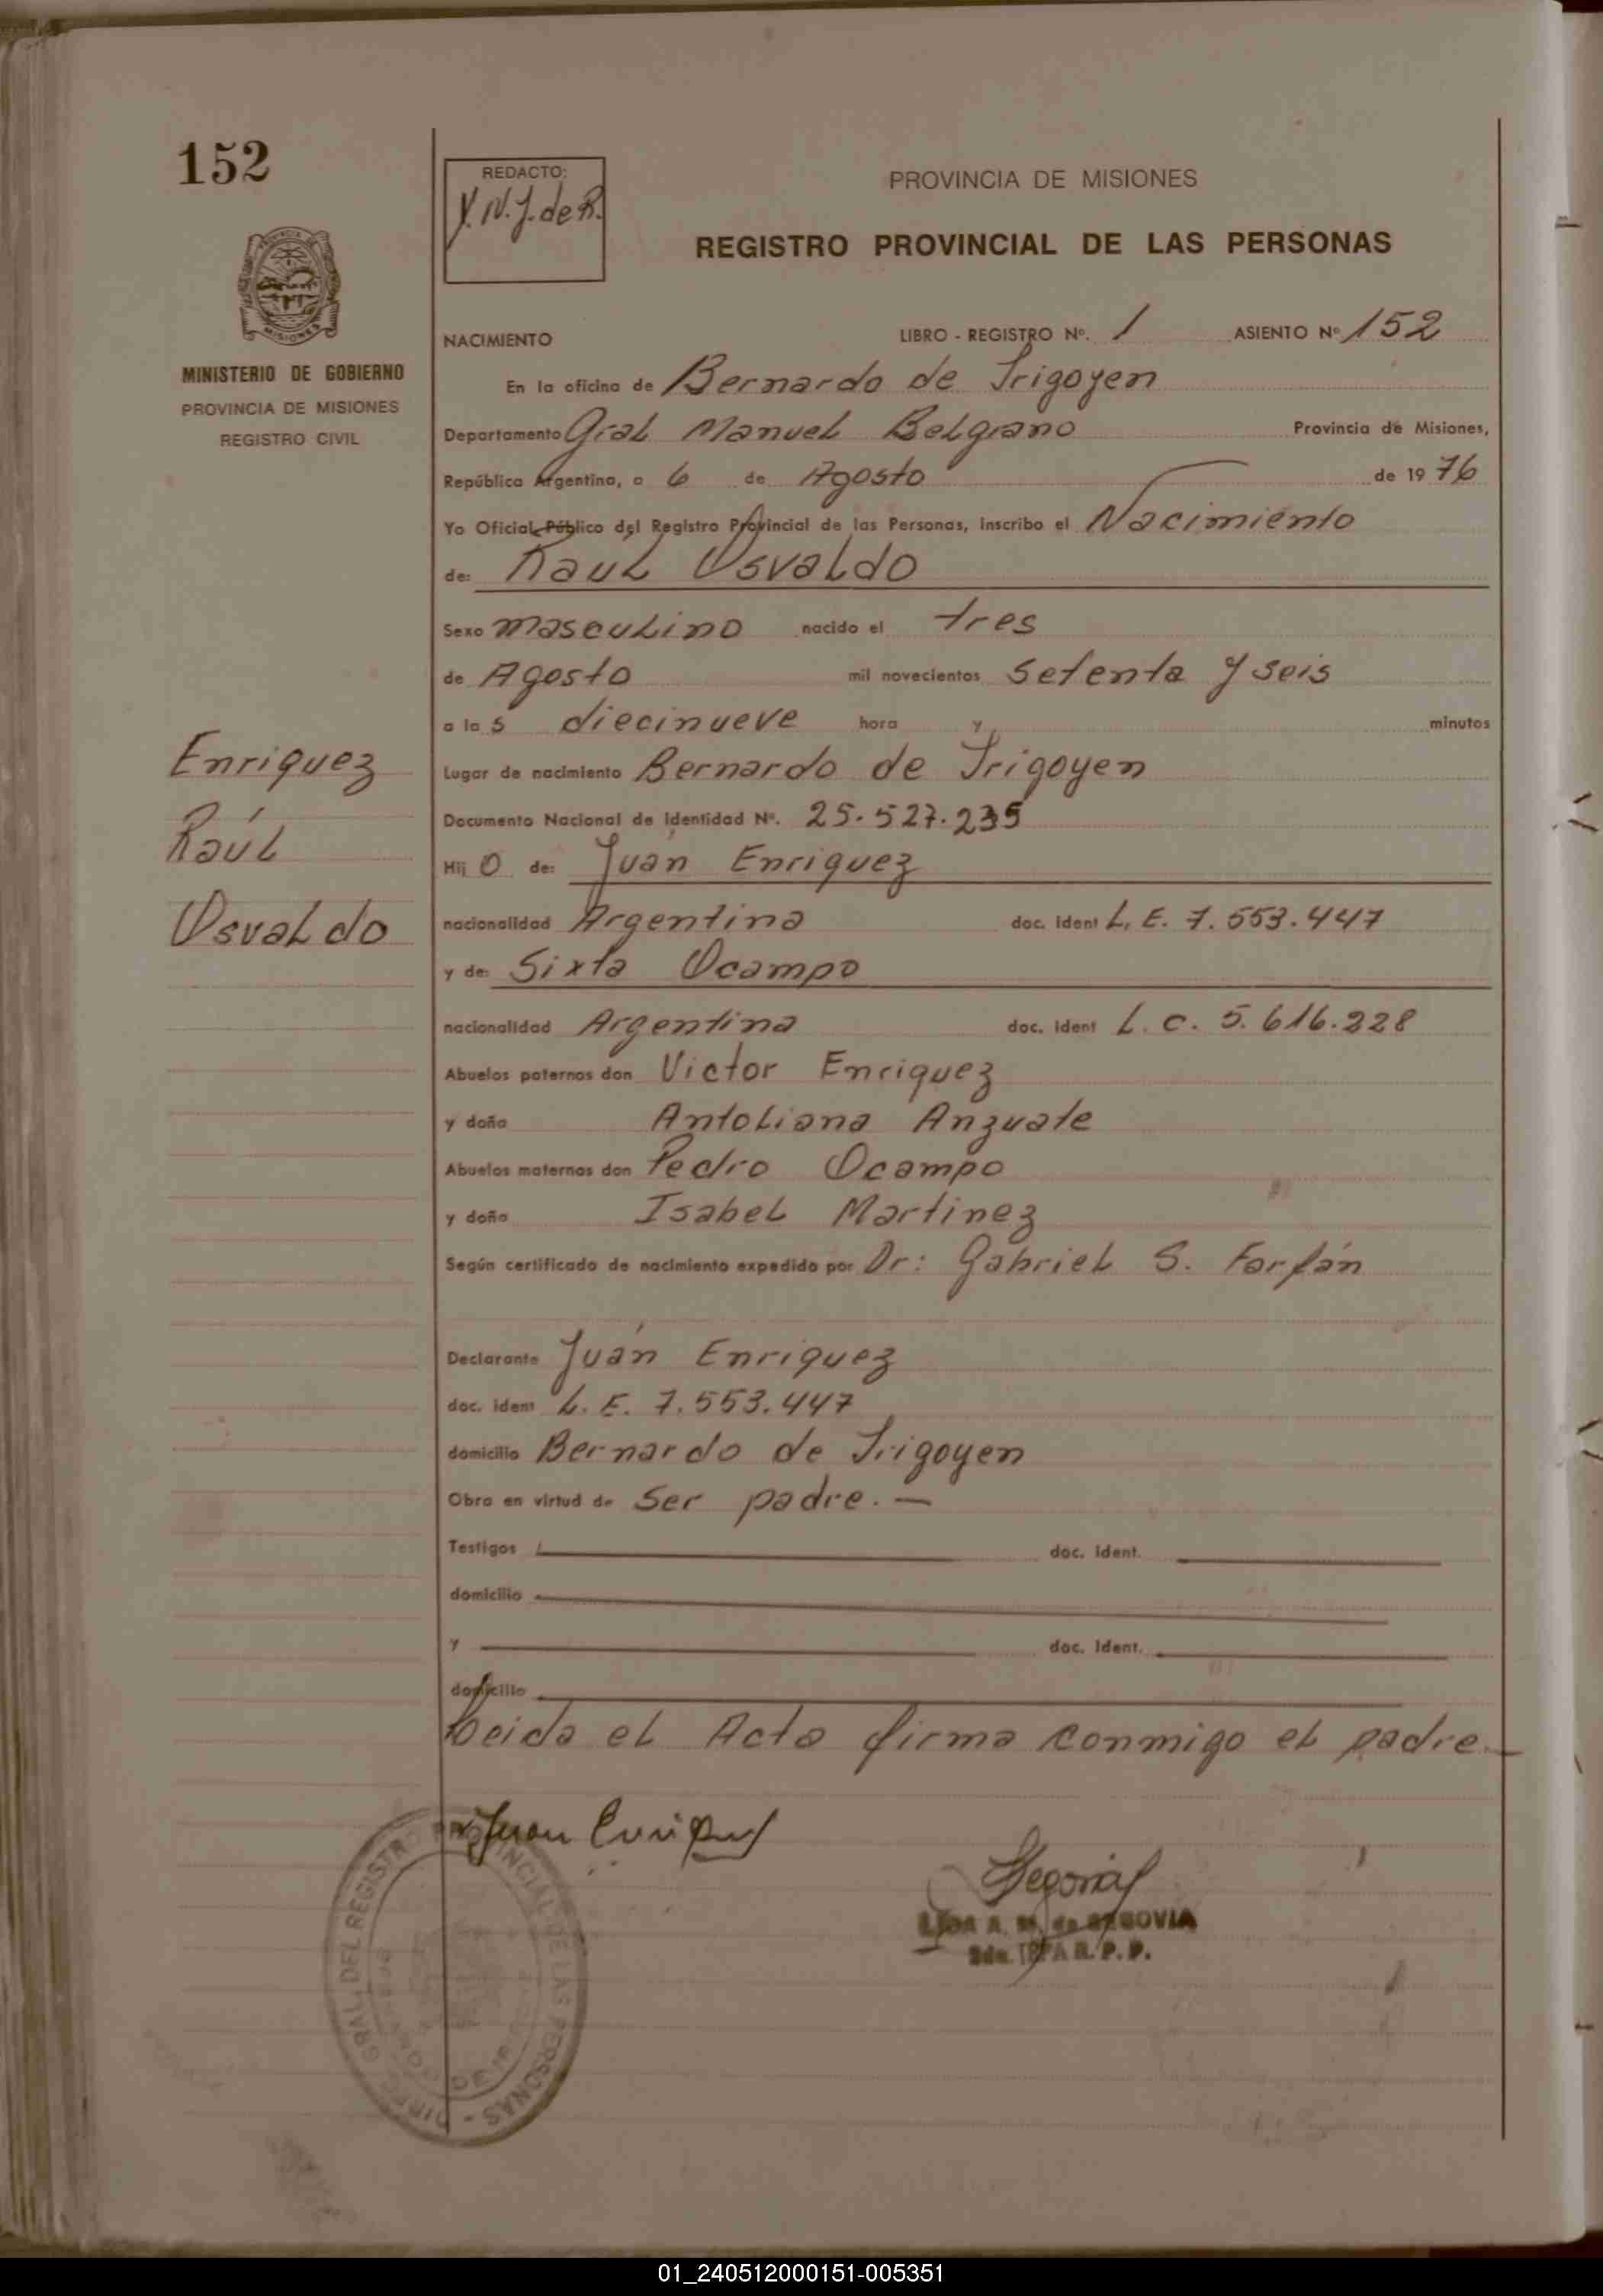 152
REDACTO:
Y. N. J. de R.
PROVINCIA DE MISIONES
REGISTRO PROVINCIAL DE LAS PERSONAS
MINISTERIO DE GOBIERNO
PROVINCIA DE MISIONES
REGISTRO CIVIL
NACIMIENTO LIBRO - REGISTRO Nº. 1 ASIENTO Nº 152
En la oficina de Bernardo de Irigoyen
Departamento Gral Manuel Belgrano Provincia de Misiones,
República Argentina, a 6 de Agosto de 1976
Yo Oficial Público del Registro Provincial de las Personas, inscribo el Nacimiento
de: Raul Osvaldo
Sexo masculino nacido el tres
de Agosto mil novecientos setenta y seis
a las diecinueve hora y minutos
Lugar de nacimiento Bernardo de Irigoyen
Documento Nacional de Identidad Nº. 25.527.235
Hijo de: Juan Enriquez
nacionalidad Argentina doc. ident L. E. 7.553.447
y de: Sixta Ocampo
nacionalidad Argentina doc. ident L. C. 5.616.228
Abuelos paternos don Victor Enriquez
y doña Antoliana Anzuate
Abuelos maternos don Pedro Ocampo
y doña Isabel Martinez
Según certificado de nacimiento expedido por Dr: Gabriel S. Farfán
Enriquez
Raúl
Osvaldo
Declarante Juán Enriquez
doc. ident L. E. 7.553.447
domicilio Bernardo de Irigoyen
Obra en virtud de ser padre. —
Testigos doc. ident.
domicilio
y doc. ident.
domicilio
Leida el Acta firma conmigo el padre.—
Juan Enriquez
Segovia
LIDA A. M. de SEGOVIA
R. P. P.
GRAL. DEL REGISTRO PROVINCIAL DE LAS PERSONAS -